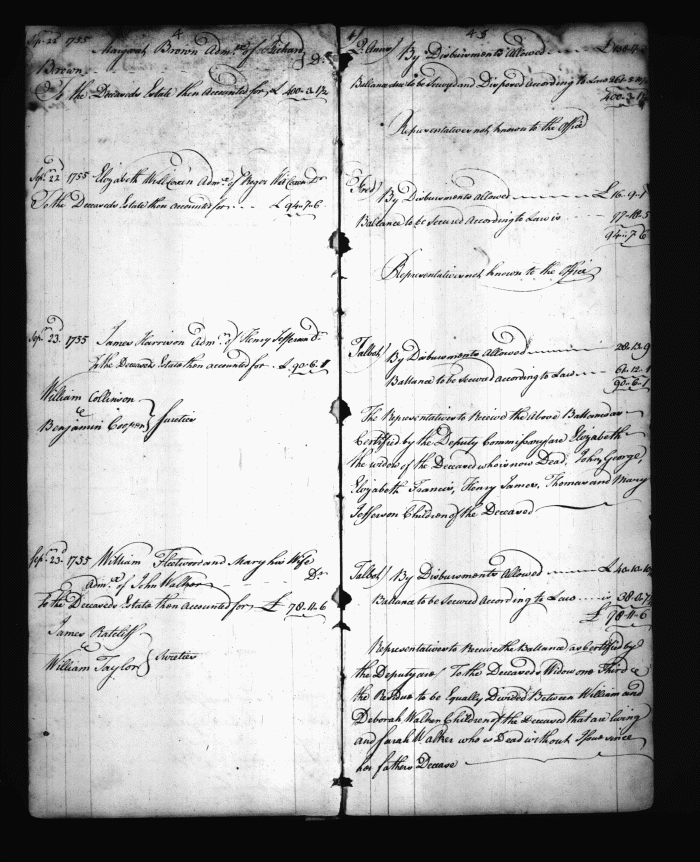 4
Sep.r 22 1755 Margaret Brown Adm.x of Richard
Brown
To the Deceaseds Estate then Accounted for £ 400-3-1½
Sep.r 22 1755 Elizabeth Willcoxin Adm.x of
To the Deceaseds Estate then accounted for £ 94-7-6
Sep.r 23.d 1755 James Harrison Adm.r of Henry Jefferson Dr
To the Deceaseds Estate then accounted for £ 90-6-1
William Collinson
&
Benjamin Cooper } Sureties
Sep.r 23.d 1755 William Fleetwood and Mary his Wife
Adm.x of John Walker Dr
To the Deceaseds Estate then Accounted for £ 78-11-6
James Ratcliff
&
William Taylor } Sureties
45
Q. Anns By Disbursments Allowed £
Ballance due to be Secured and Disposed According to Law
400-3-1½
Representatives not known to the Office
By Disbursments Allowed £ 16-9-1
Ballance to be Secured According to Law is 77-18-5
94-7-6
Representatives not known to the Office
Talbot By Disbursments Allowed 28-13-9
Ballance to be Secured According to Law 61-12-4
90-6-1
The Representatives to Receive the above Ballance as
Certified by the Deputy Commissary are Elizabeth
the widow of the Deceased who is now Dead, John, George,
Elizabeth Francis, Henry James, Thomas and Mary
Jefferson Children of the Deceased
Talbot By Disbursments Allowed £ 40-10-10½
Ballance to be Secured According to Law is 38-0-7½
£ 78-11-6
Representatives to Receive the Ballance as certified by
the Deputy are To the Deceaseds Widow one Third &
the Residue to be Equally Divided Between William and
Deborah Walker Children of the Deceased that are living
and Sarah Walker who is Dead without Issue since
her fathers Decease